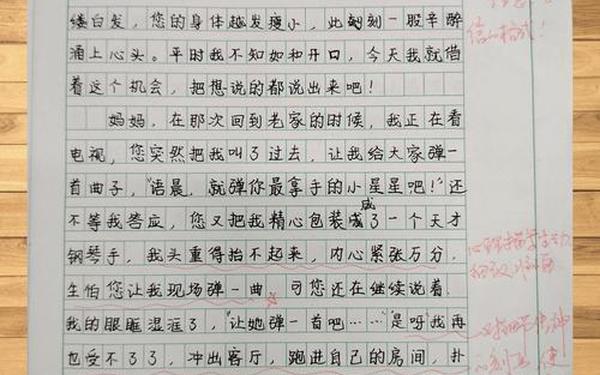 缕白发，您的身体越发瘦小，此朝刻一股辛酸
涌上心头。平时我不知如和开口，今天我就借
着这个机会，把想说的都说出来吧！
妈妈，在那次回到老家的时候，我正在看
电视，您突然把我叫了过去，让我给大家弹一
首曲子，“语晨，就弹你最拿手的小星星吧！”还
不等我答应，您又把我精心包装成了一个天才
钢琴手，我头重得抬不起来，内心紧张万分，
生怕您让我现场弹一曲 可您还在继续说着
我的眼眶湿涯了，“让她弹一首吧……”是呀我再
也受不了了，冲出客厅，跑进自己的房间，扑
信的格式！